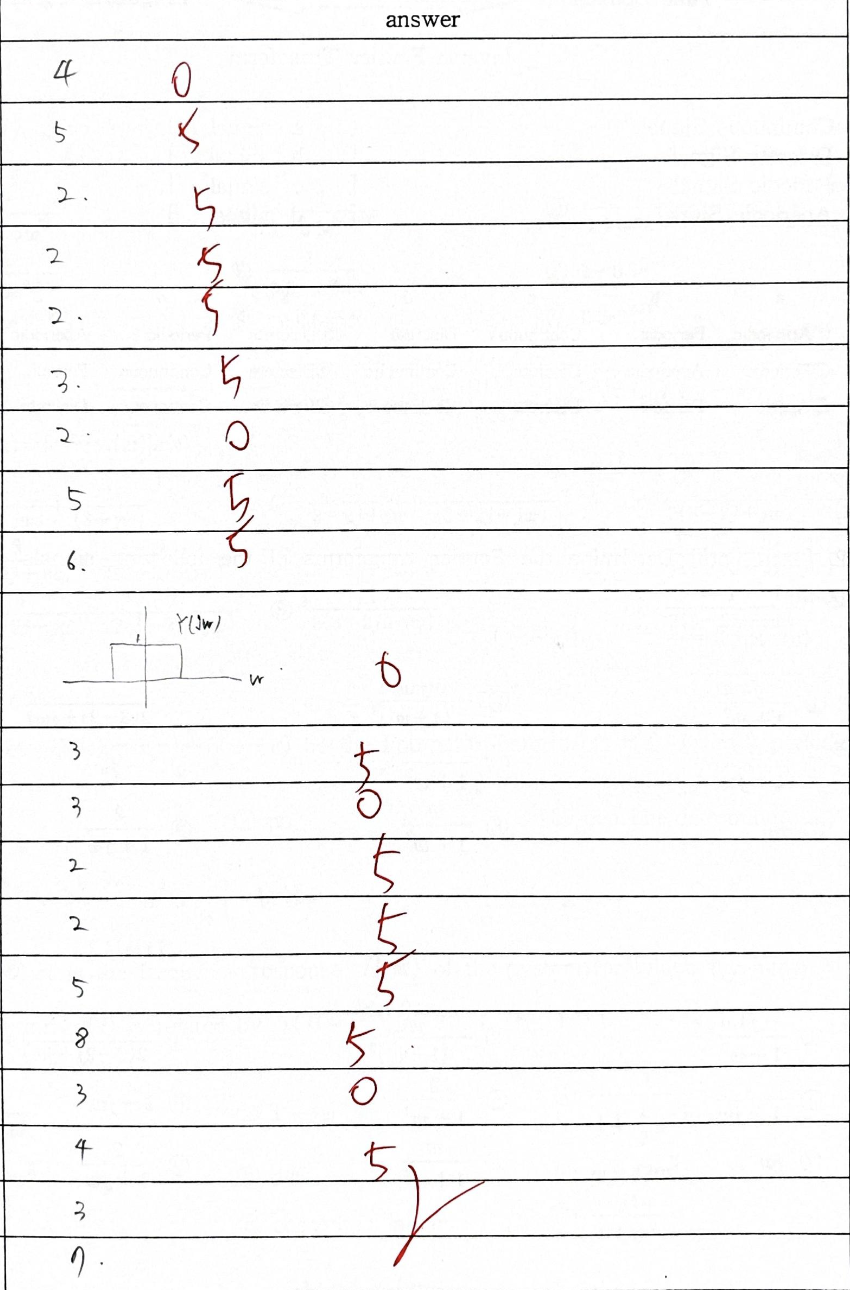 answer
4 0
5 5
2. 5
2 5
2. 5
3. 5
2. 0
5 5
6. 5
1 Y(Jw)
w 0
3 5
3 0
2 5
2 5
5 5
8 5
3 0
4 5
3